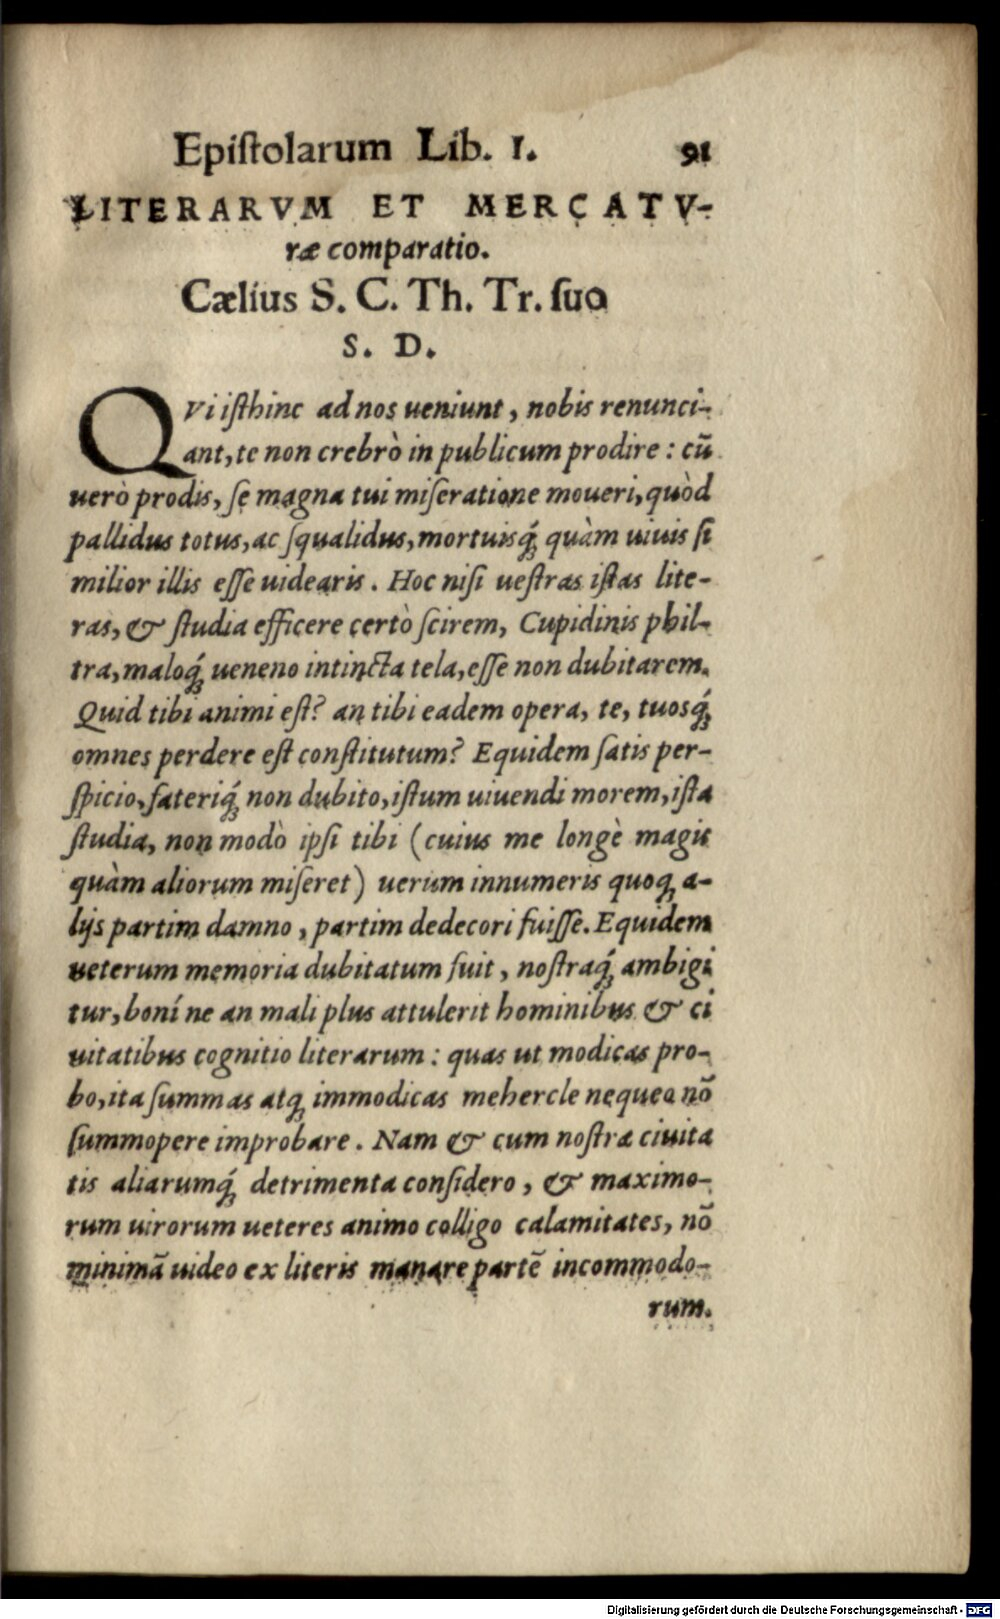 Epiſtolarum Lib. I. 91
LITERARVM ET MERCATV-
ræ comparatio.
Cælius S. C. Th. Tr. ſuo
S. D.
QVi iſthinc ad nos ueniunt, nobis renunci-
ant, te non crebrò in publicum prodire: cũ
uerò prodis, ſe magna tui miſeratione moueri, quòd
pallidus totus, ac ſqualidus, mortuisq́; quàm uiuis ſi
milior illis eſſe uidearis. Hoc niſi ueſtras iſtas lite-
ras, & ſtudia efficere certò ſcirem, Cupidinis phil-
tra, maloq́; ueneno intincta tela, eſſe non dubitarem.
Quid tibi animi eſt? an tibi eadem opera, te, tuosq́;
omnes perdere eſt conſtitutum? Equidem ſatis per-
ſpicio, fateriq́; non dubito, iſtum uiuendi morem, iſta
ſtudia, non modò ipſi tibi (cuius me longè magis
quàm aliorum miſeret) uerum innumeris quoq; a-
lijs partim damno, partim dedecori fuiſſe. Equidem
ueterum memoria dubitatum fuit, noſtraq́; ambigi
tur, boní ne an mali plus attulerit hominibus & ci
uitatibus cognitio literarum: quas ut modicas pro-
bo, ita ſummas atq; immodicas mehercle nequeo nõ
ſummopere improbare. Nam & cum noſtra ciuita
tis aliarumq́; detrimenta conſidero, & maximo-
rum uirorum ueteres animo colligo calamitates, nõ
minimã uideo ex literis manare partẽ incommodo-
rum.
Digitalisierung gefördert durch die Deutsche Forschungsgemeinschaft - DFG